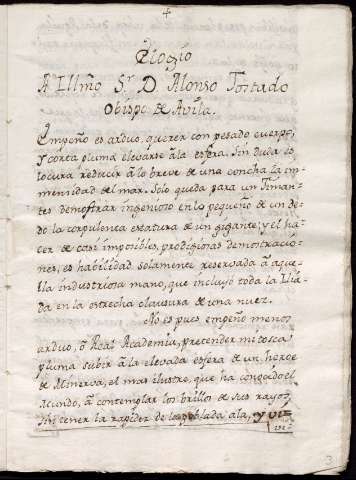 Elogio
Al Illmo Sr. D. Alonso Tostado
Obispo de Avila.
Empeño es arduo, querer con pesado cuerpo,
y corta pluma elevarse a la esfera. Sin duda es
locura reducir à lo breve de una concha la in-
mensidad del mar. Solo queda para un Timan-
tes demostrar ingenioso en lo pequeño de un de-
do la corpulenta estatura de un gigante; y el ha-
cer de casi imposibles, prodigiosas demostracio-
nes, es habilidad solamente reservada à aque-
lla industriosa mano, que incluyó toda la Ilia-
da en la estrecha clausura de una nuez.
No es pues empeño menos
arduo, ò Real Academia, pretender mi tosca
pluma subir à la elevada esfera de un heroe
de Minerva, el mas ilustre, que ha conocido el
Mundo, à contemplar los brillos de sus rayos,
sin tener la rapidez de poblada ala, y vi-
3